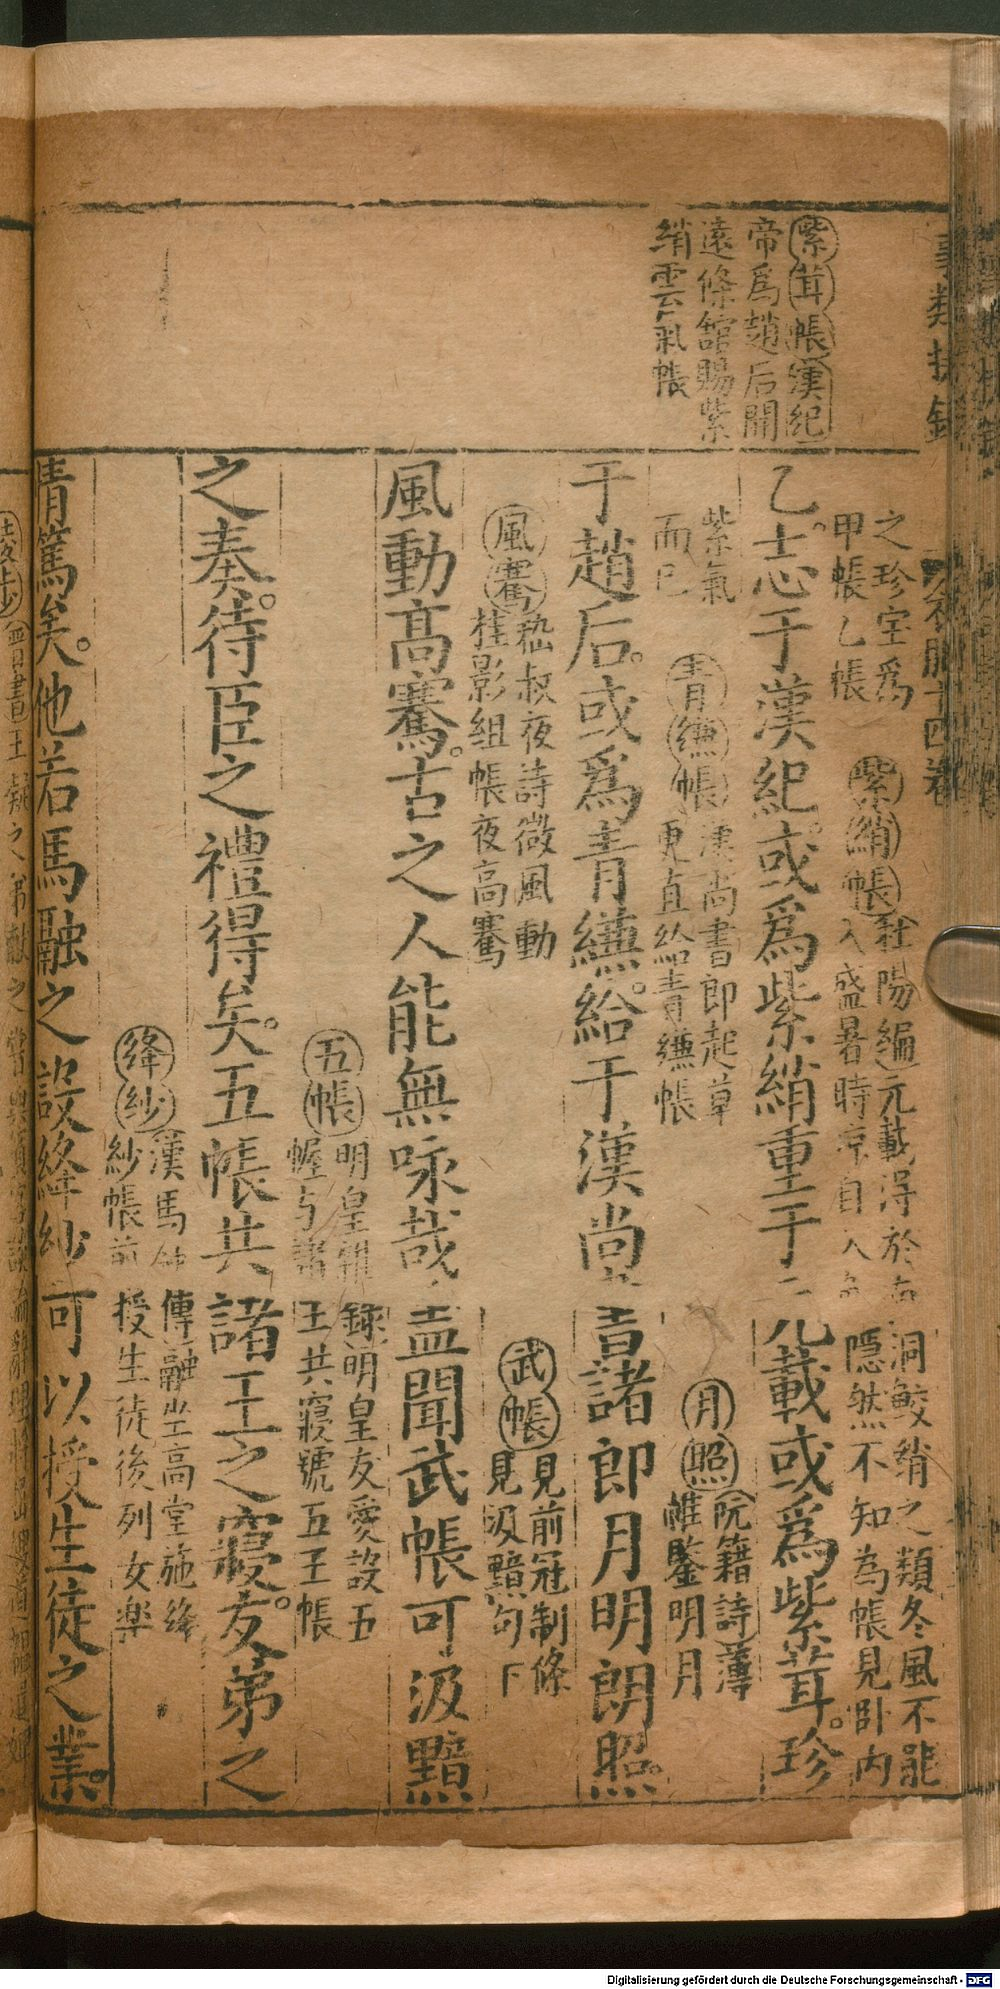 紫茸帳漢紀
帝爲趙后開
遠條舘賜紫
綃雲氣帳
之珍宝爲
甲帳乙帳
紫綃帳杜陽編元載得於南
入盛暑時凉自入
洞鮫綃之類冬風不能
隠然不知為帳見卧内
乙志于漢紀或爲紫綃重于元載或爲紫茸珍
紫氣
而已
青縑帳漢尚書郎起草
更直給青縑帳
月照阮籍詩薄
帷鑒明月
于趙后或爲青縑給于漢尚書諸郎月明朗照
風鶱嵇叔夜詩微風動
桂影組帳夜高鶱
武帳見前冠制條
見汲黯句下
風動高鶱古之人能無咏哉盖聞武帳可汲黯
五帳明皇雜
幄与諸
録明皇友愛設五
王共寢號五王帳
之奏待臣之禮得矣五帳共諸王之寢友弟之
絳紗漢馬
紗帳前
傳融坐高堂施絳
授生徒後列女楽
情篤矣他若馬融之設絳紗可以授生徒之業
Digitalisierung gefördert durch die Deutsche Forschungsgemeinschaft - DFG